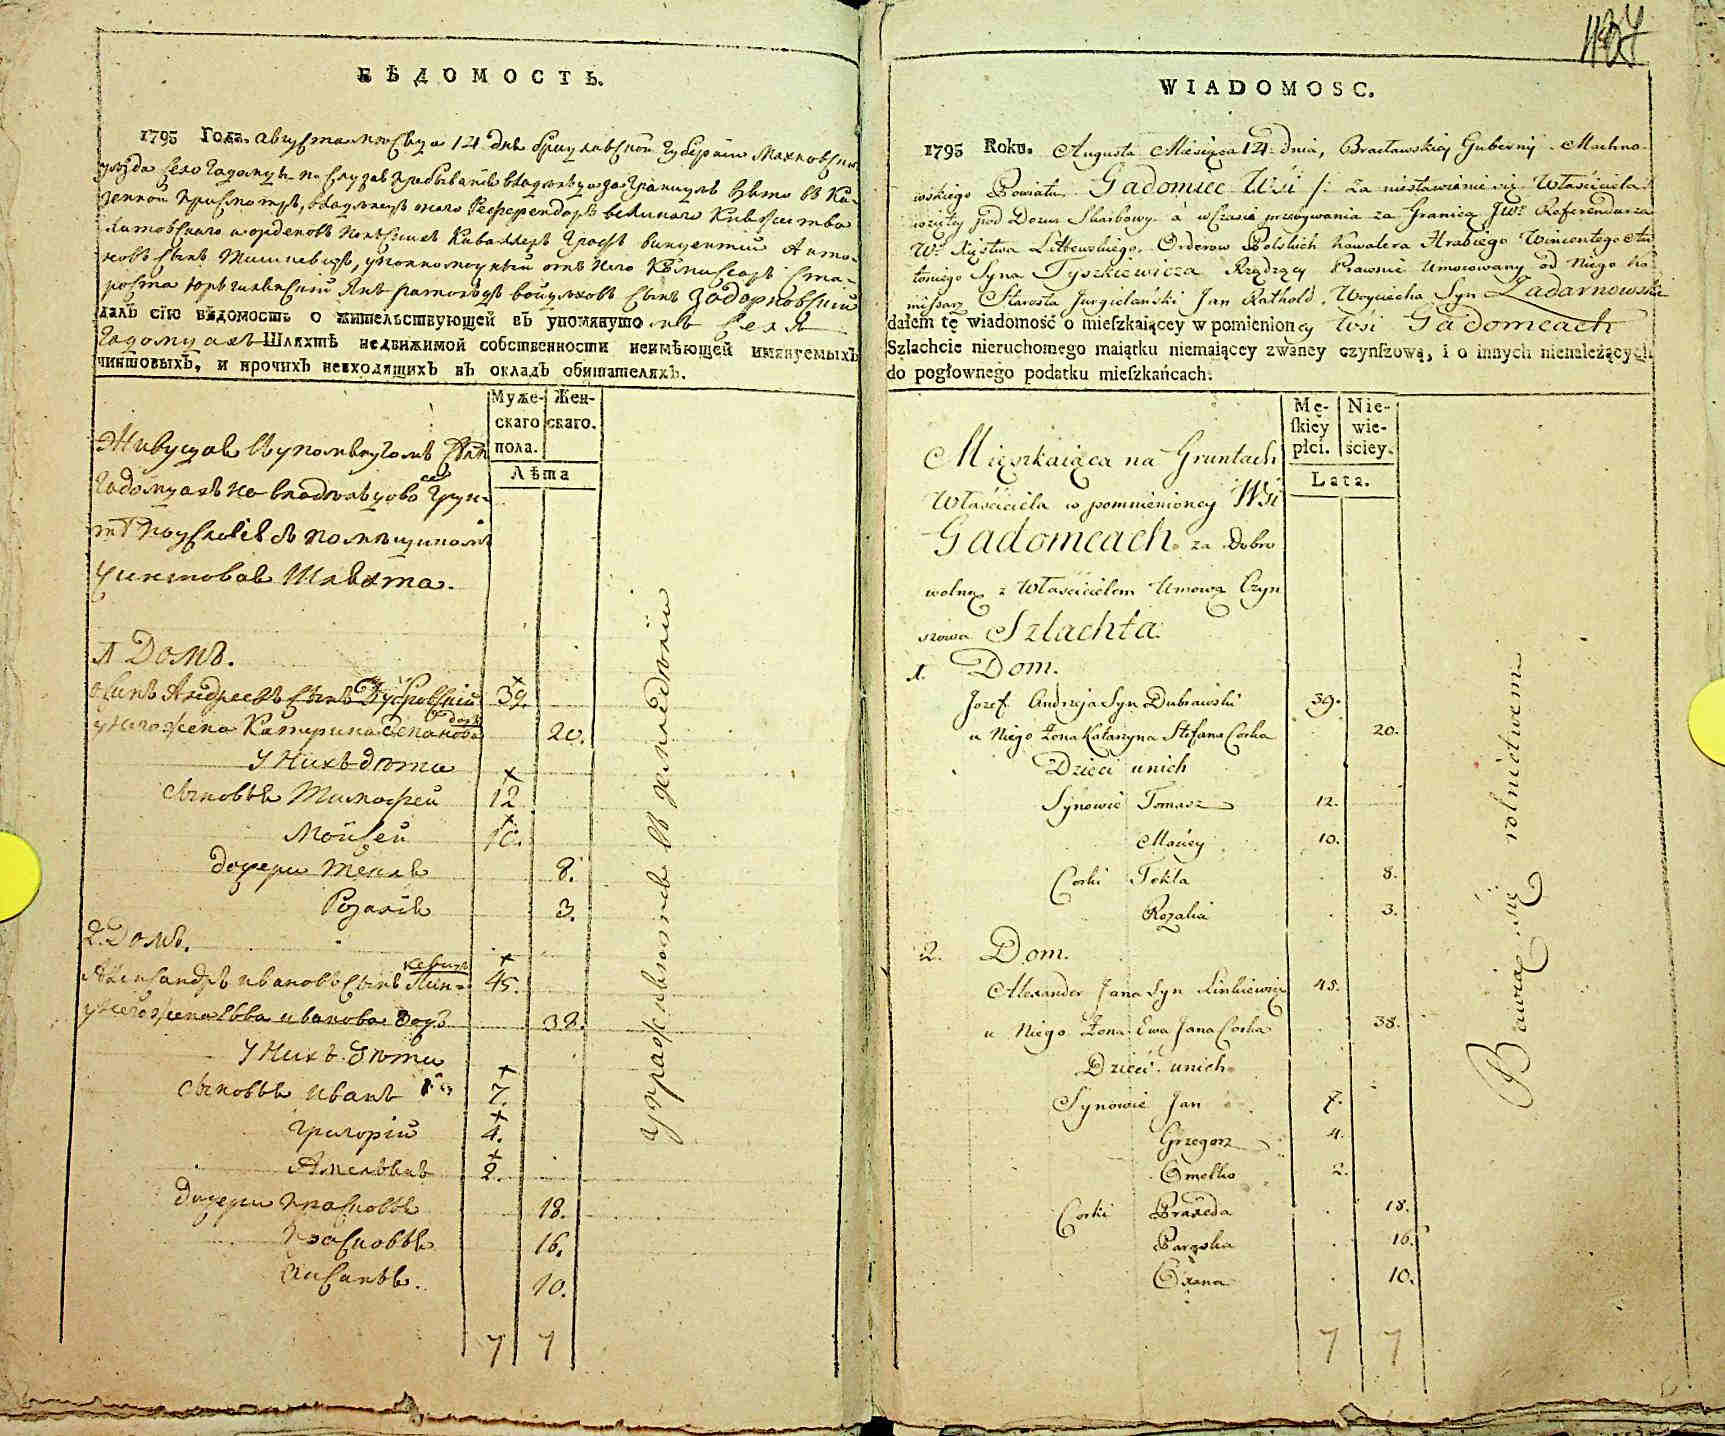 ВѢДОМОСТЬ.
1795 Года августа мѣсяца 14 дня Брацлавской Губерніи Махновскаго
уѣзда села Гадомцъ по случаю пребыванія владѣльца за границею взято въ Ка-
зенной присмотръ, владѣльца онаго Референдаръ великаго Княжества
Литовскаго и орденовъ польскихъ Кавалеръ Графъ Викентій Антоно-
новъ сынъ Тишкевичъ, уполномоченный отъ него Комисаръ ста-
роста Юргелянскій Янъ Ратольдъ Войцѣховъ сынъ Задорновскій
далъ сію вѣдомость о жительствующей въ упомянутомъ селѣ
Гадомцахъ Шляхтѣ недвижимой собственности неимѣющей имянуемыхъ
чиншовыхъ, и прочихъ невходящихъ въ окладъ обишателяхъ.
Муже-скаго пола. Жен-скаго.
Лѣта
Живущая въ упомянутомъ селѣ
Гадомцахъ на владѣльцовой грун-
тѣ по условію съ помѣщикомъ
Чиншовая Шляхта.
1 Домъ.
Осипъ Андреевъ сынъ Дубровскій 39.
у него жена Катерина Степанова дочь 20.
У нихъ дѣти
сыновья Тимофей 12
Мойсей 10.
дочери Текля 8.
Розалія 3.
2. Домъ.
Александръ Ивановъ сынъ Линкевичъ 45.
у него жена Евва Иванова дочь 38.
У нихъ дѣти
сыновья Иванъ 7.
Григорій 4.
Амельянъ 2.
дочери Прасковья 18.
Прасковья 16.
Аксанья. 10.
7 7
упражняются въ земледѣліи
WIADOMOSC.
1795 Roku. Augusta Miesiąca 14 dnia, Bracławskiey Gubernij Machno-
wskiego Powiatu Gadomiec Wsi /: za niestawienie się Właściciela
wziętey pod Dozor Skarbowy a w Czasie przebywania za Granicą JWo Referendarza
Wo Xięstwa Littewskiego, Orderow Polskich Kawalera Hrabiego Wincentego An-
toniego Syna Tyszkiewicza Rządzący Prawnie Umocowany od Niego Ko-
missarz Starosta Jurgielański Jan Rathold, Woyciecha Syn Zadarnowski
dałem tę wiadomość o mieſzkaiącey w pomienioney Wsi Gadomcach
Szlachcie nieruchomego maiątku niemaiącey zwaney czynſzową, i o innych nienależących
do pogłownego podatku mieſzkańcach.
Mę-ſkiey płci. Nie-wie-ściey.
Lata.
Mięszkaiąca na Gruntach
Właściciela w pomnienioney Wsi
Gadomcach za Dobro
wolną z Właścicielem Umową Czyn
szowa Szlachta.
1. Dom.
Jozef Andrzeja Syn Dubrawski 39.
u Niego Żona Katarzyna Stefana Corka 20.
Dzieci unich
Synowie Tomasz 12.
Maciey 10.
Corki Tekla 8.
Rozalia 3.
2. Dom.
Alexander Jana Syn Linkiewicz 45.
u Niego Żona Ewa Jana Corka 38.
Dzieci unich
Synowie Jan 7.
Grzegorz 4.
Omelko 2.
Corki Praxeda 18.
Paraska 16.
Oxana 10.
7 7
Bawią się rolnictwem